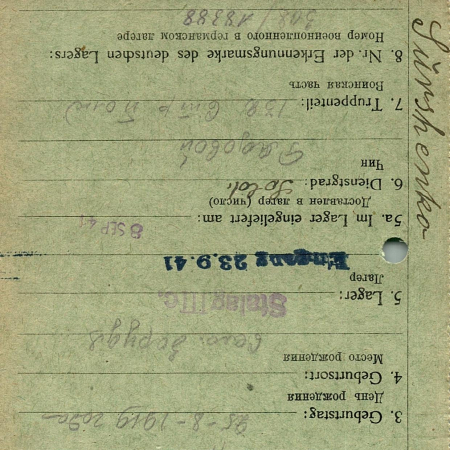 3. Geburtstag: 25-8-1919 года
День рождения
4. Geburtsort:
Место рождения
село
5. Lager: Stalag III c.
Лагер
Eingang 23.9.41
5a. Im Lager eingeliefert am: 8 SEP 41
Доставлен в лагер (число)
6. Dienstgrad: Sold.
Чин
Рядовой
7. Truppenteil: 130 Стр
Воинская часть
8. Nr. der Erkennungsmarke des deutschen Lagers:
Номер военнопленного в германском лагере
18388
Sürshenko